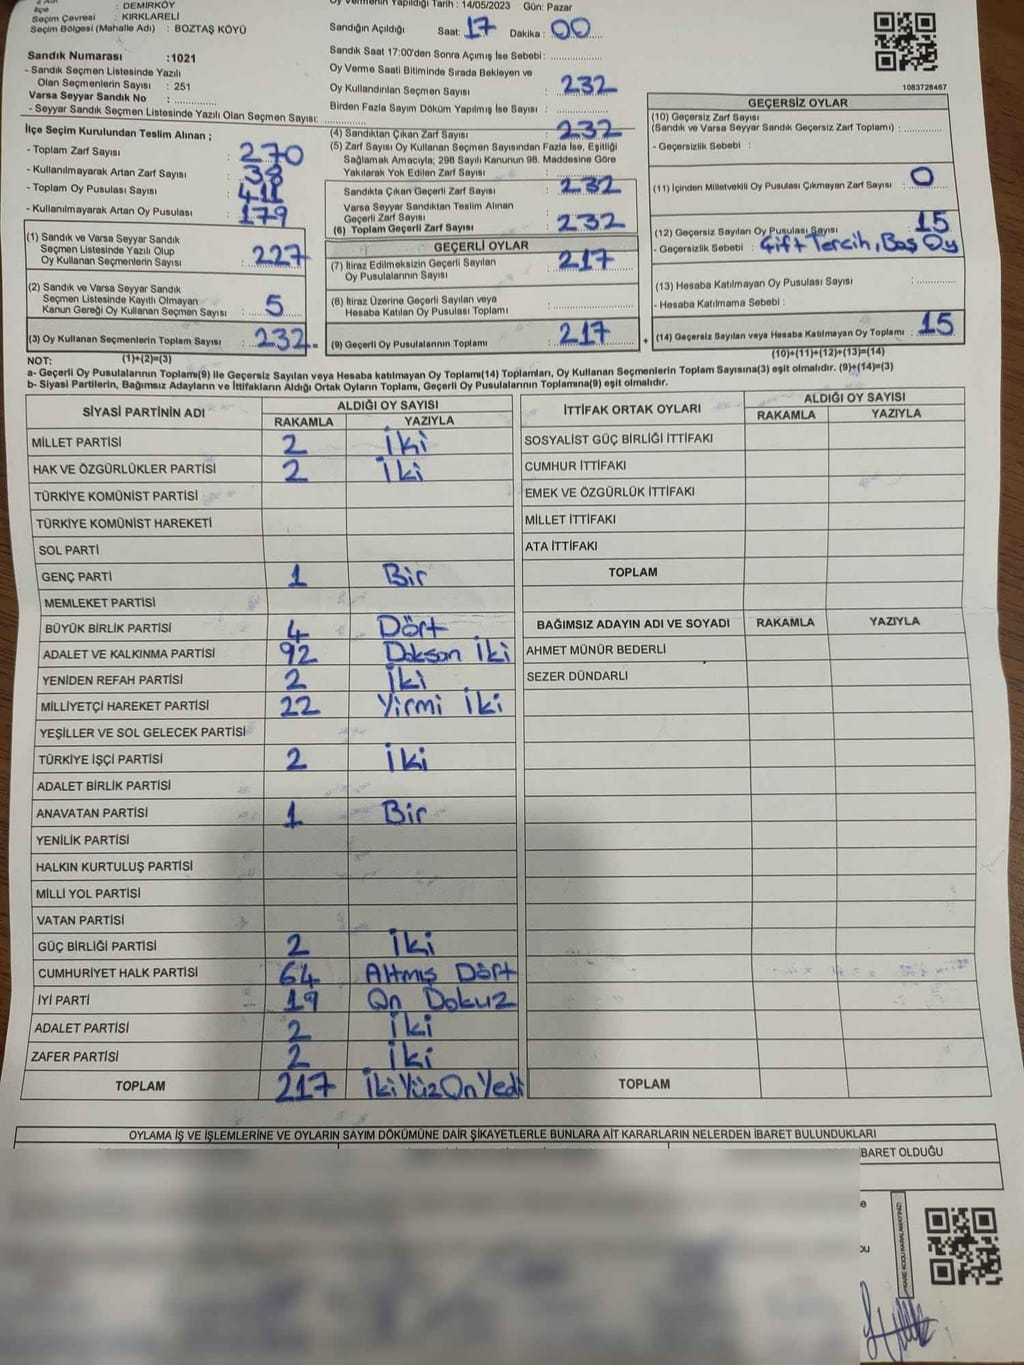 İlçe : DEMİRKÖY
Seçim Çevresi : KIRKLARELİ
Seçim Bölgesi (Mahalle Adı) : BOZTAŞ KÖYÜ
Sandık Numarası :1021
- Sandık Seçmen Listesinde Yazılı
Olan Seçmenlerin Sayısı : 251
Varsa Seyyar Sandık No :
- Seyyar Sandık Listesinde Yazılı Olan Seçmen Sayısı:
İlçe Seçim Kurulundan Teslim Alınan ;
- Toplam Zarf Sayısı : 270
- Kullanılmayarak Artan Zarf Sayısı : 38
- Toplam Oy Pusulası Sayısı : 411
- Kullanılmayarak Artan Oy Pusulası : 179
(1) Sandık ve Varsa Seyyar Sandık
Seçmen Listesinde Yazılı Olup
Oy Kullanan Seçmenlerin Sayısı : 227
(2) Sandık ve Varsa Seyyar Sandık
Seçmen Listesinde Kayıtlı Olmayan
Kanun Gereği Oy Kullanan Seçmen Sayısı : 5
(3) Oy Kullanan Seçmenlerin Toplam Sayısı : 232 =
(1)+(2)=(3)
Oy Vermenin Yapıldığı Tarih : 14/05/2023 Gün: Pazar
Sandığın Açıldığı Saat: 17 Dakika : 00
Sandık Saat 17:00'den Sonra Açılmış İse Sebebi :
Oy Verme Saati Bitiminde Sırada Bekleyen ve
Oy Kullandırılan Seçmen Sayısı : 232
Birden Fazla Sayım Döküm Yapılmış İse Sayısı :
(4) Sandıktan Çıkan Zarf Sayısı : 232
(5) Zarf Sayısı Oy Kullanan Seçmen Sayısından Fazla İse, Eşitliği
Sağlamak Amacıyla; 298 Sayılı Kanunun 98. Maddesine Göre
Yakılarak Yok Edilen Zarf Sayısı :
Sandıkta Çıkan Geçerli Zarf Sayısı : 232
Varsa Seyyar Sandıktan Teslim Alınan
Geçerli Zarf Sayısı :
(6) Toplam Geçerli Zarf Sayısı : 232
GEÇERLİ OYLAR
(7) İtiraz Edilmeksizin Geçerli Sayılan
Oy Pusulalarının Sayısı : 217
(8) İtiraz Üzerine Geçerli Sayılan veya
Hesaba Katılan Oy Pusulası Toplamı :
(9) Geçerli Oy Pusulalarının Toplamı : 217 +
1083728467
GEÇERSİZ OYLAR
(10) Geçersiz Zarf Sayısı
(Sandık ve Varsa Seyyar Sandık Geçersiz Zarf Toplamı) :
- Geçersizlik Sebebi :
(11) İçinden Milletvekili Oy Pusulası Çıkmayan Zarf Sayısı : 0
(12) Geçersiz Sayılan Oy Pusulası Sayısı : 15
- Geçersizlik Sebebi : Çift Tercih, Boş Oy
(13) Hesaba Katılmayan Oy Pusulası Sayısı :
- Hesaba Katılmama Sebebi :
(14) Geçersiz Sayılan veya Hesaba Katılmayan Oy Toplamı : 15
(10)+(11)+(12)+(13)=(14)
NOT:
a- Geçerli Oy Pusulalarının Toplamı(9) ile Geçersiz Sayılan veya Hesaba Katılmayan Oy Toplam(14) Toplamları, Oy Kullanan Seçmenlerin Toplam Sayısına(3) eşit olmalıdır. (9)+(14)=(3)
b- Siyasi Partilerin, Bağımsız Adayların ve İttifakların Aldığı Ortak Oyların Toplamı, Geçerli Oy Pusulalarının Toplamına(9) eşit olmalıdır.
SİYASİ PARTİNİN ADI ALDIĞI OY SAYISI
RAKAMLA YAZIYLA
MİLLET PARTİSİ 2 İki
HAK VE ÖZGÜRLÜKLER PARTİSİ 2 İki
TÜRKİYE KOMÜNİST PARTİSİ
TÜRKİYE KOMÜNİST HAREKETİ
SOL PARTİ
GENÇ PARTİ 1 Bir
MEMLEKET PARTİSİ
BÜYÜK BİRLİK PARTİSİ 4 Dört
ADALET VE KALKINMA PARTİSİ 92 Doksan İki
YENİDEN REFAH PARTİSİ 2 İki
MİLLİYETÇİ HAREKET PARTİSİ 22 Yirmi İki
YEŞİLLER VE SOL GELECEK PARTİSİ
TÜRKİYE İŞÇİ PARTİSİ 2 İki
ADALET BİRLİK PARTİSİ
ANAVATAN PARTİSİ 1 Bir
YENİLİK PARTİSİ
HALKIN KURTULUŞ PARTİSİ
MİLLİ YOL PARTİSİ
VATAN PARTİSİ
GÜÇ BİRLİĞİ PARTİSİ 2 İki
CUMHURİYET HALK PARTİSİ 64 Altmış Dört
İYİ PARTİ 19 On Dokuz
ADALET PARTİSİ 2 İki
ZAFER PARTİSİ 2 İki
TOPLAM 217 İkiYüzOnYedi
İTTİFAK ORTAK OYLARI ALDIĞI OY SAYISI
RAKAMLA YAZIYLA
SOSYALİST GÜÇ BİRLİĞİ İTTİFAKI
CUMHUR İTTİFAKI
EMEK VE ÖZGÜRLÜK İTTİFAKI
MİLLET İTTİFAKI
ATA İTTİFAKI
TOPLAM
BAĞIMSIZ ADAYIN ADI VE SOYADI RAKAMLA YAZIYLA
AHMET MÜNÜR BEDERLİ
SEZER DÜNDARLI
TOPLAM
OYLAMA İŞ VE İŞLEMLERİNE VE OYLARIN SAYIM DÖKÜMÜNE DAİR ŞİKAYETLERLE BUNLARA AİT KARARLARIN NELERDEN İBARET BULUNDUKLARI
BARET OLDUĞU